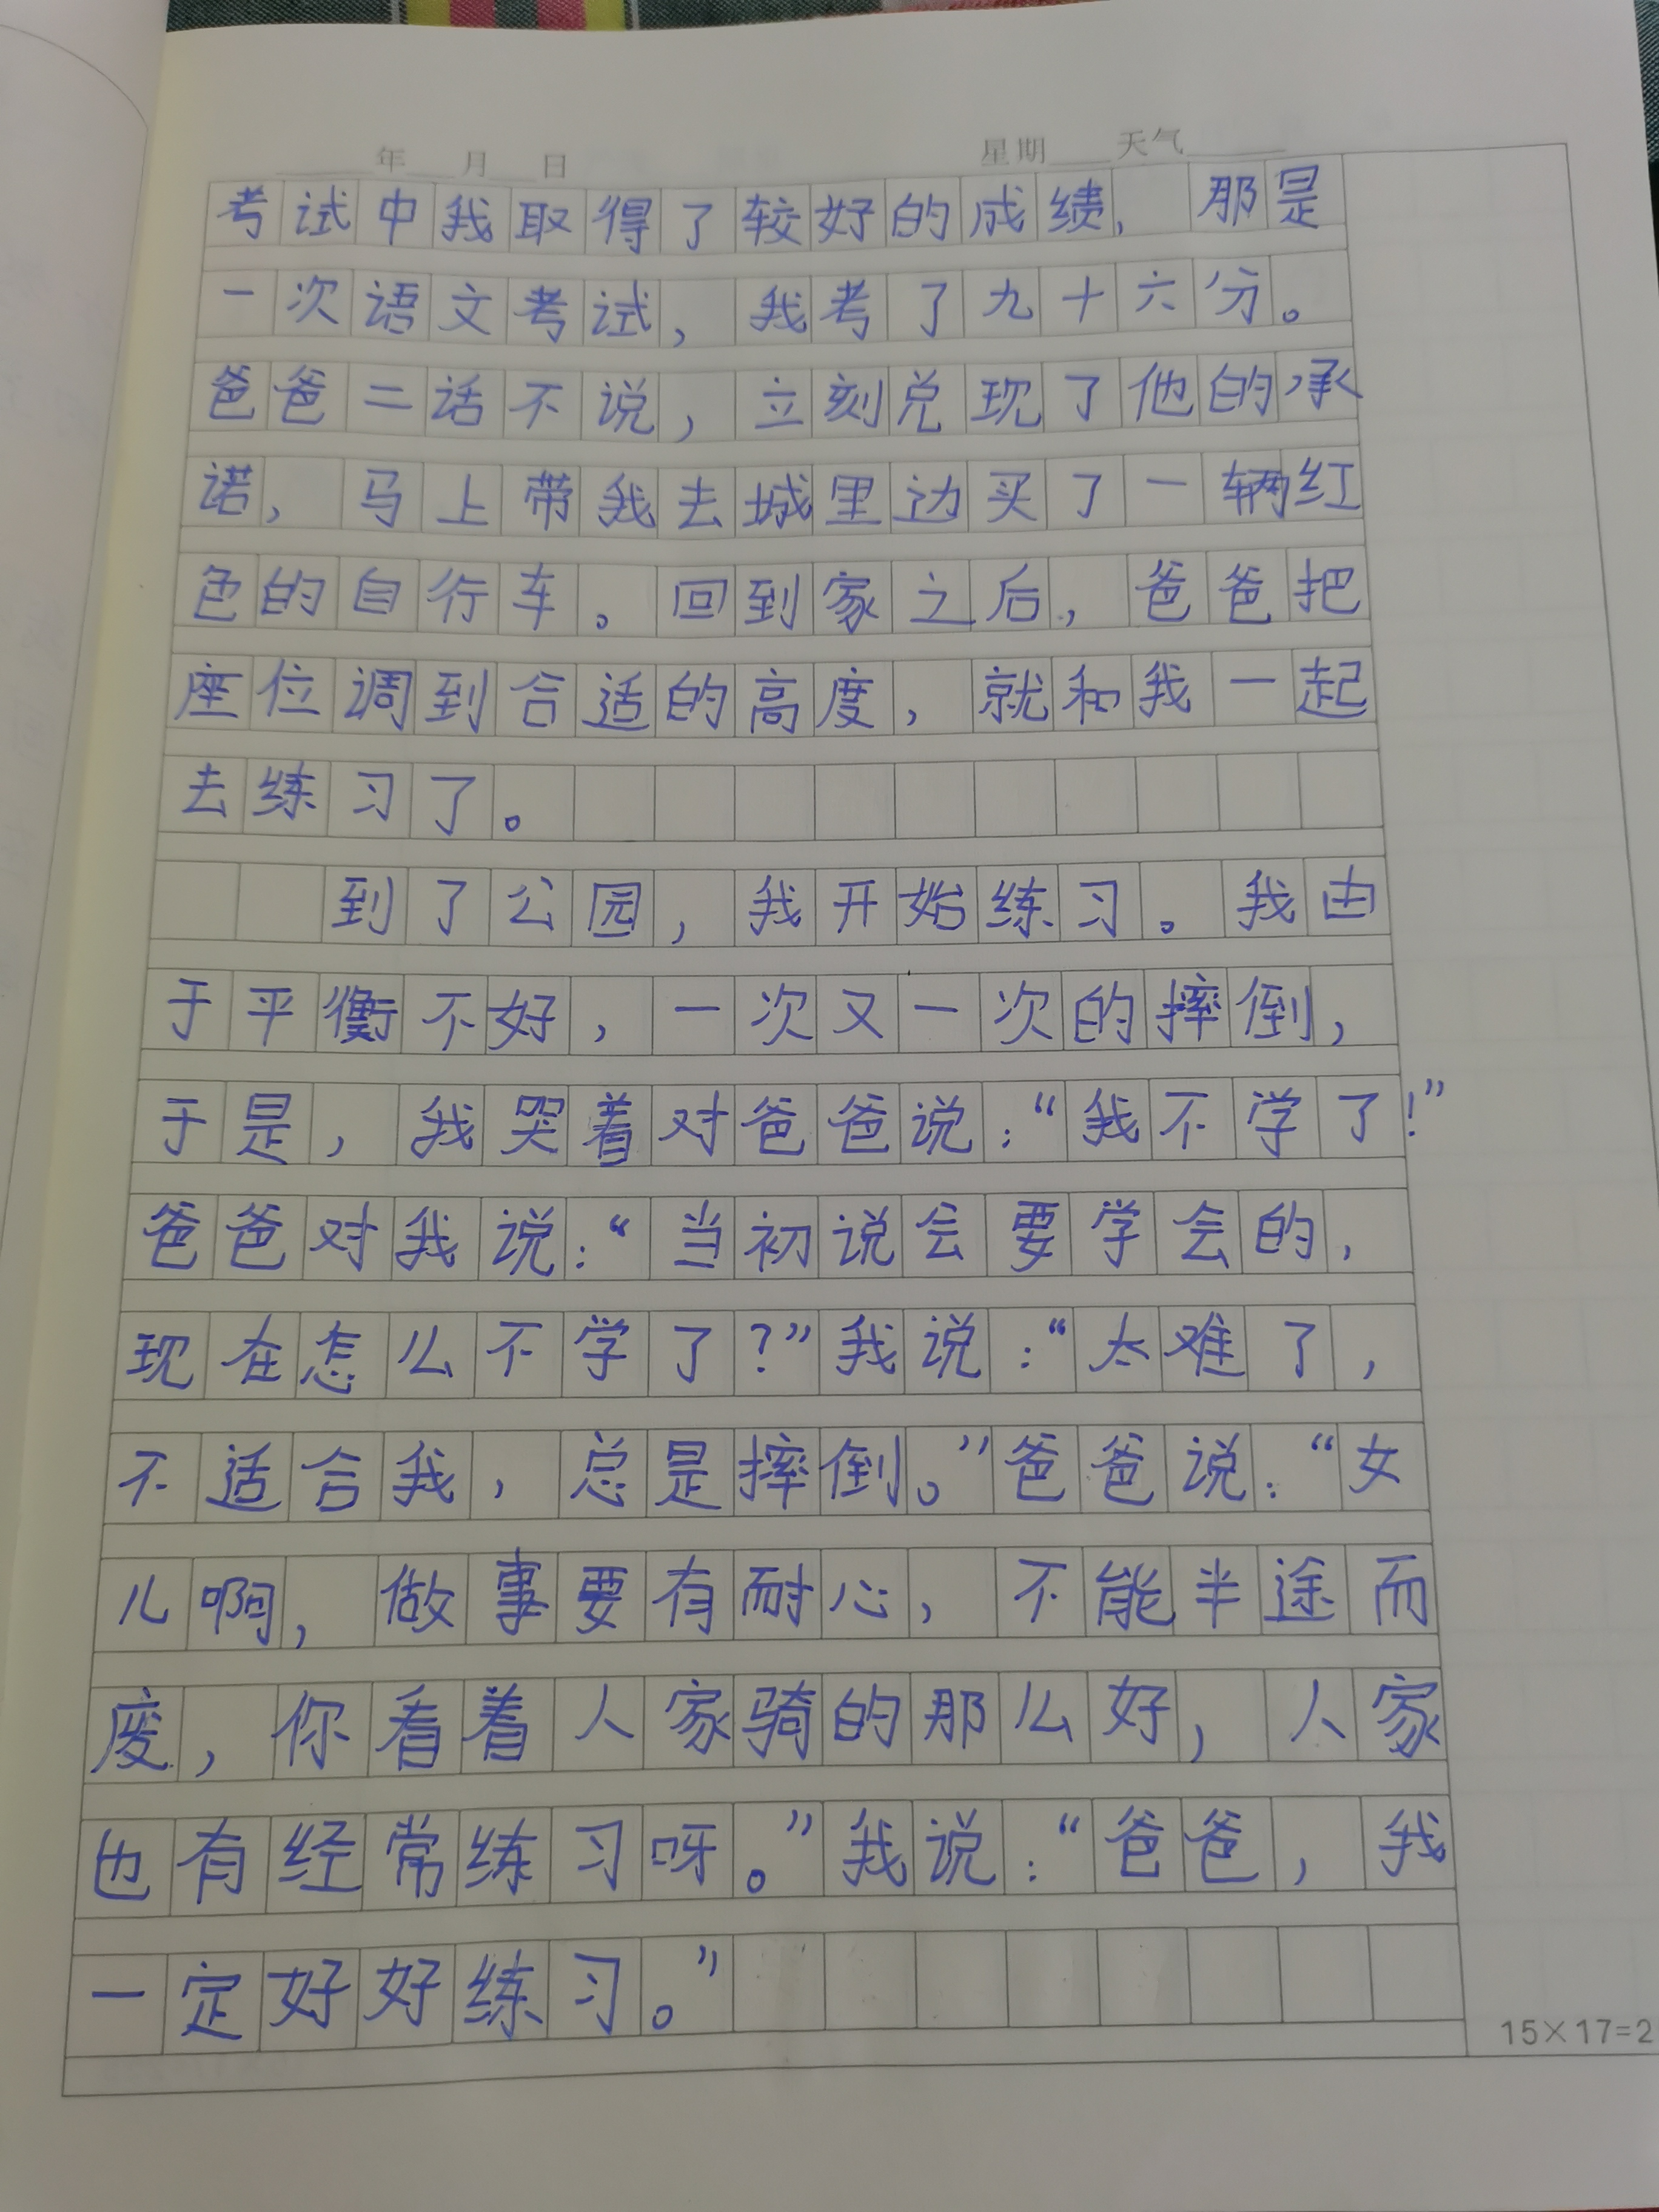 ____年___月___日 星期___天气_____
考试中我取得了较好的成绩，那是
一次语文考试，我考了九十六分。
爸爸二话不说，立刻兑现了他的承
诺，马上带我去城里边买了一辆红
色的自行车。回到家之后，爸爸把
座位调到合适的高度，就和我一起
去练习了。
到了公园，我开始练习。我由
于平衡不好，一次又一次的摔倒，
于是，我哭着对爸爸说：“我不学了！”
爸爸对我说：“当初说会要学会的，
现在怎么不学了？”我说：“太难了，
不适合我，总是摔倒。”爸爸说：“女
儿啊，做事要有耐心，不能半途而
废，你看着人家骑的那么好，人家
也有经常练习呀。”我说：“爸爸，我
一定好好练习。”
15×17=2